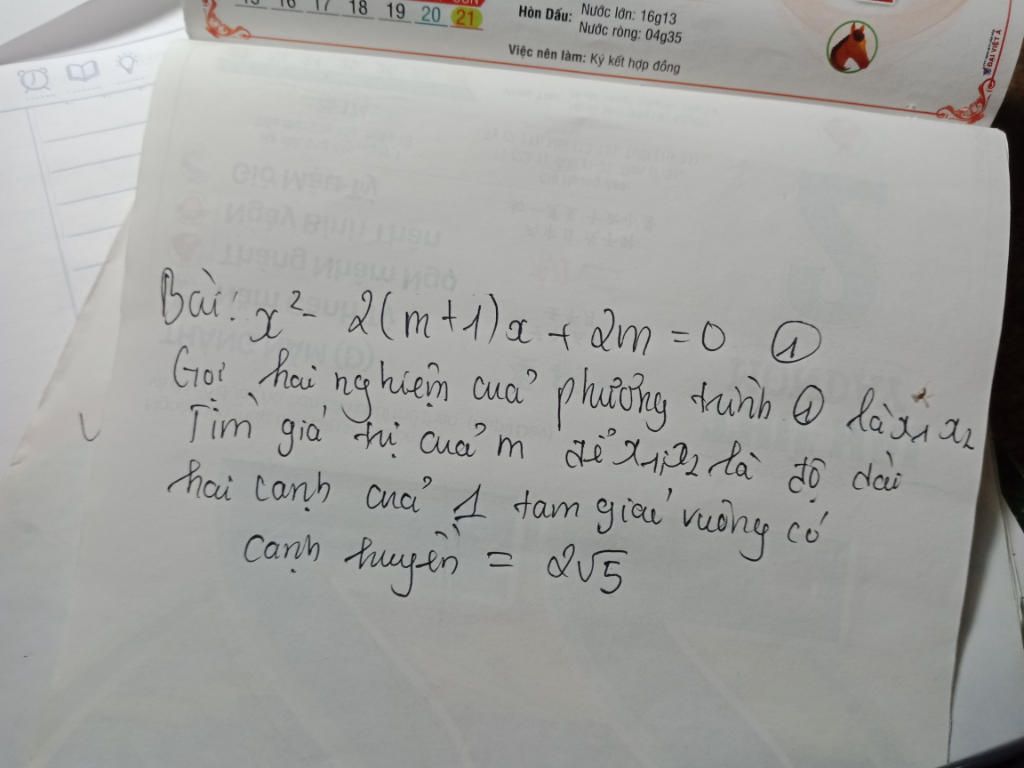 16 17 18 19 20 21
Hòn Dấu: Nước lớn: 16g13
Nước ròng: 04g35
Việc nên làm: Ký kết hợp đồng
Bài: x² - 2(m+1)x + 2m = 0 ①
Gọi hai nghiệm của phương trình ① là x₁ x₂
Tìm giá trị của m để x₁, x₂ là độ dài
hai cạnh của 1 tam giác vuông có
cạnh huyền = 2√5